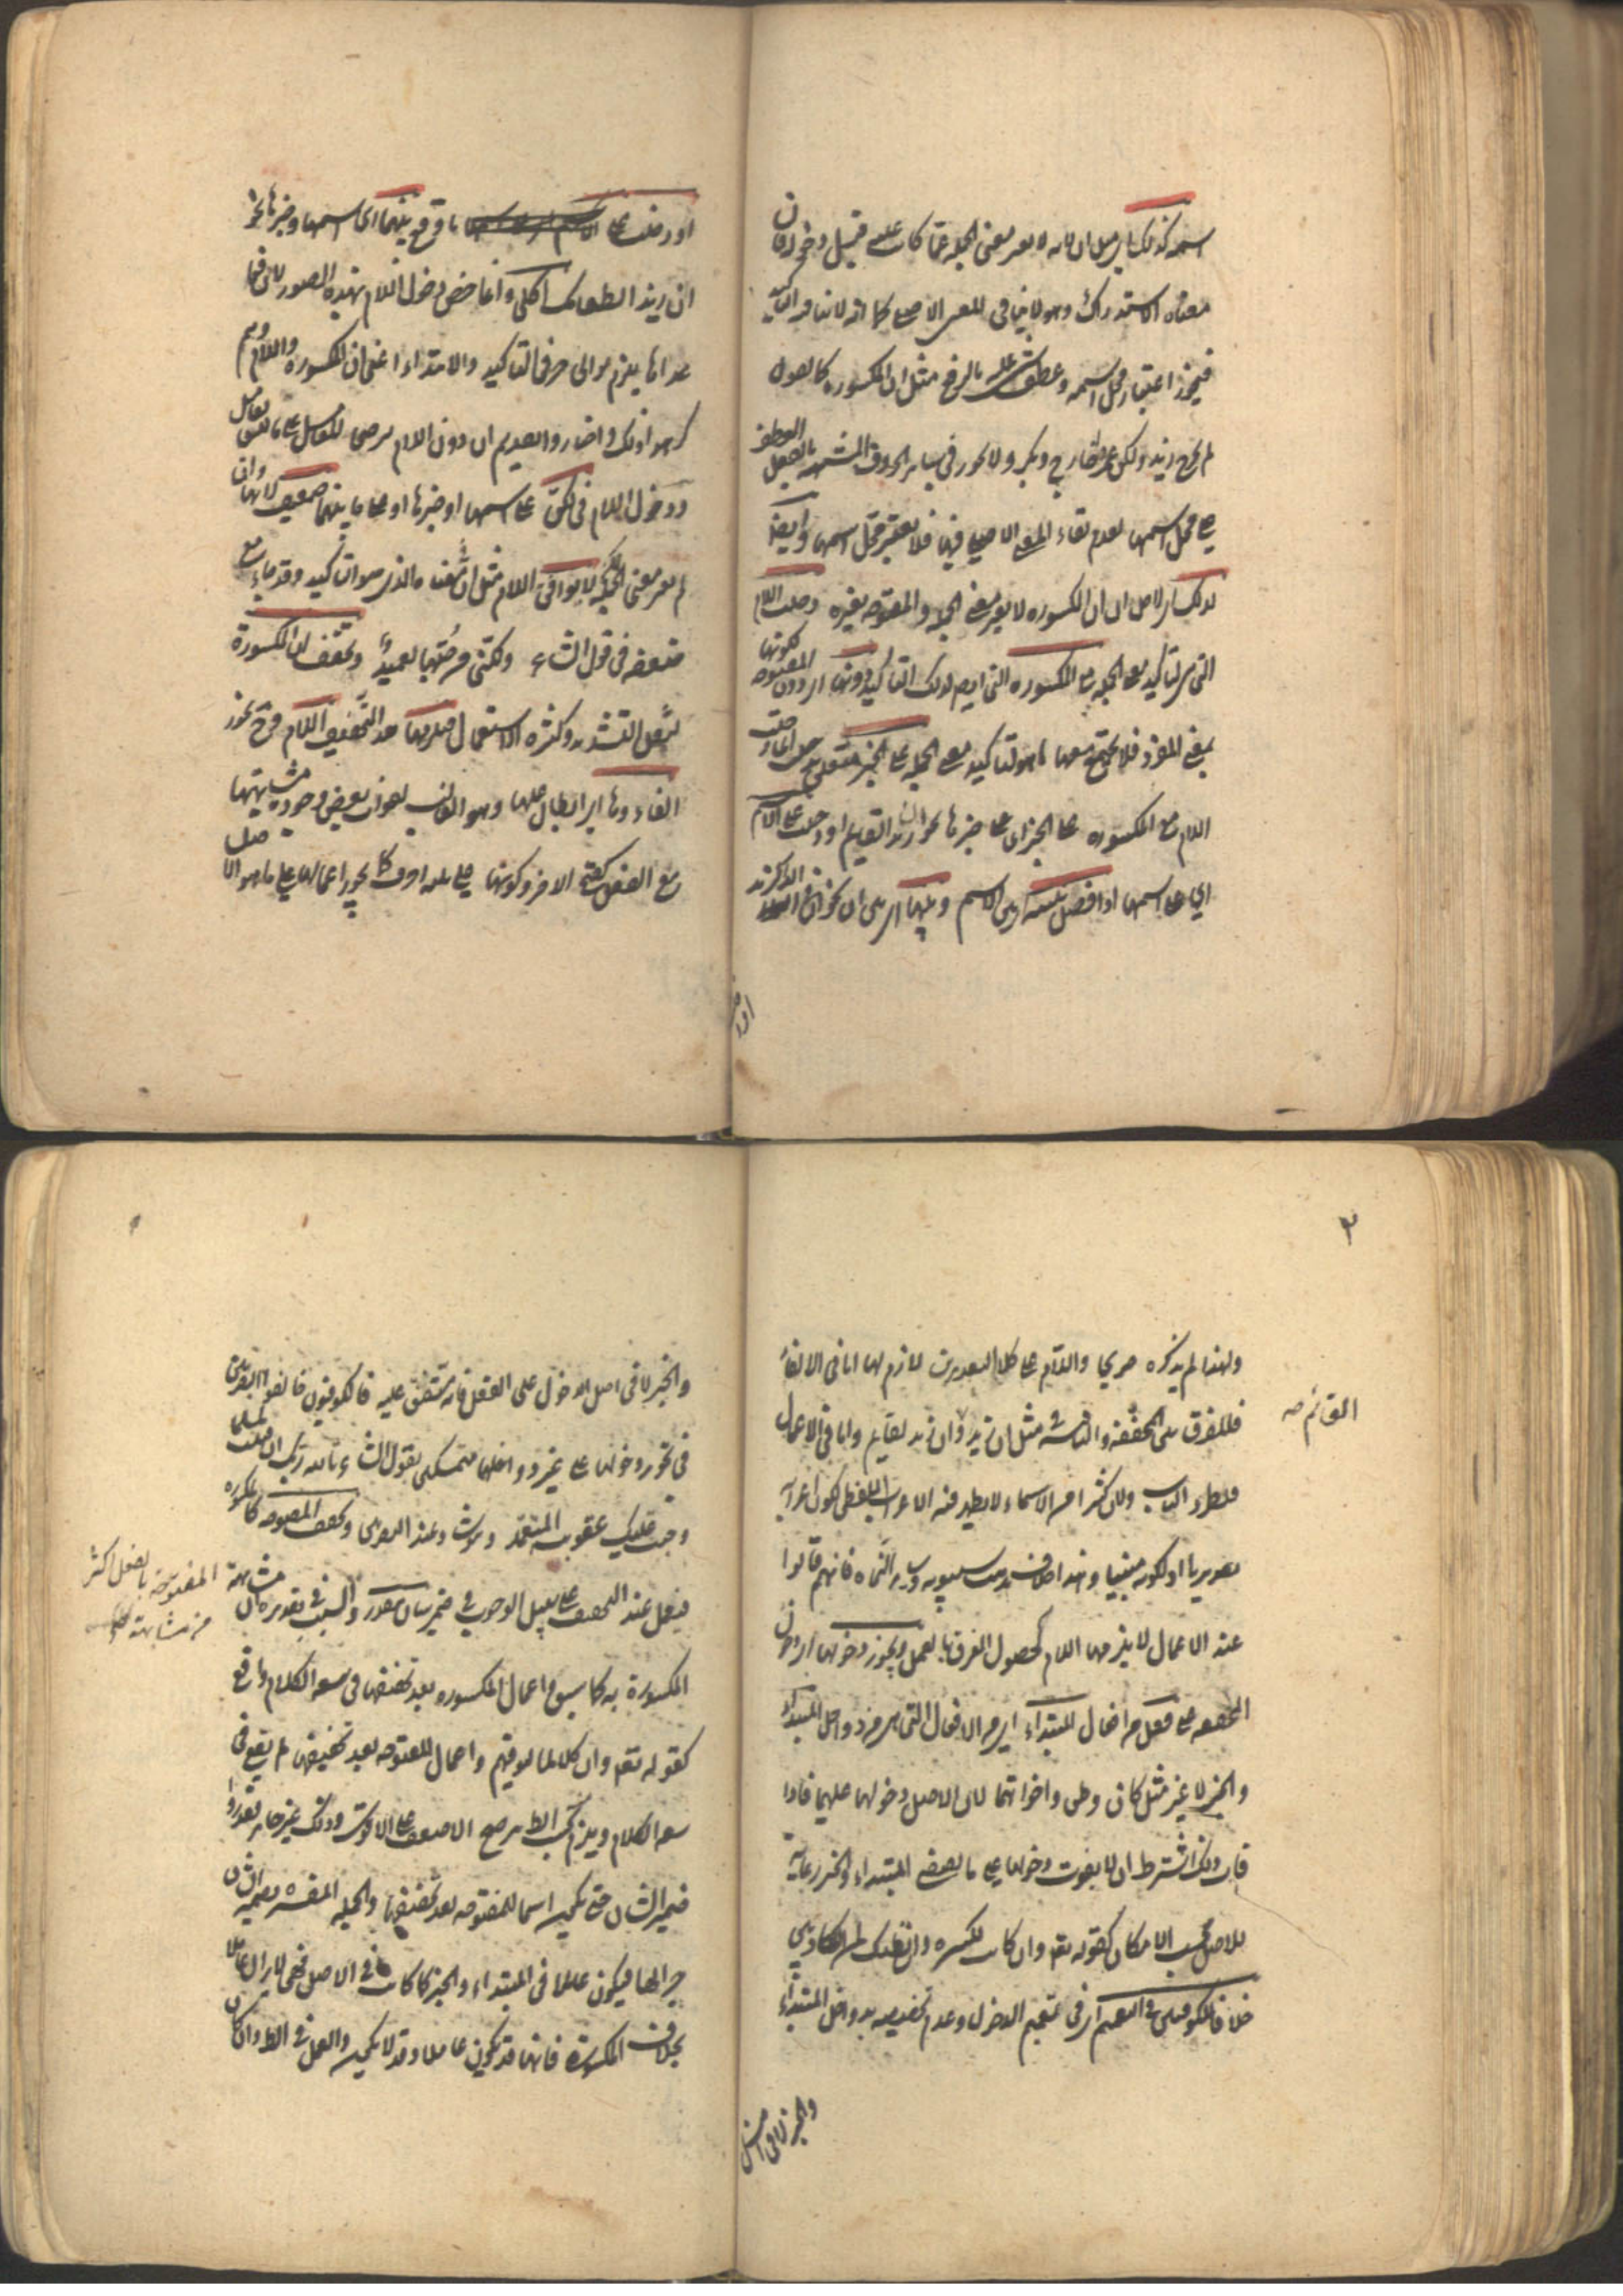 اسمه كذلك اى مثل ان لانه لا يغير معنى الجملة عما كانت عليه قبل دخوله فان
معناه الاستدراك وهو لا ينافى المعنى الاصلى كما انه لا ينافيه التاكيد
فيجوز اعتبار محل اسمه وعطف شئ عليه بالرفع مثل ان المكسورة كما تقول
لم يخرج زيد ولكن عمرا خارج وبكر ولا يجوز فى سائر الحروف المشبهة بالفعل العطف
على محل اسمها لعدم بقاء المعنى الاصلى فيها فلا يعتبر محل اسمها ايضا
لذلك اى لاجل ان ان المكسورة لا يغير معنى الجملة والمفتوحة يغيره دخلت اللام
التى هى لتاكيد معنى الجملة مع المكسورة التى ايضا لذلك التاكيد دونها اى دون المفتوحة لكونها
بمعنى المفرد فلا يجتمع معها ما هو لتاكيد معنى الجملة على الخبر متعلق بدخلت اى اذا دخلت
اللام مع المكسورة على الخبر اى على خبرها نحو ان زيدا لقائم او دخلت على الاسم
اى على اسمها اذا فصل بينه اى بين الاسم وبينها اى بين ان نحو ان فى الدار لزيد
او دخلت على ما وقع بينهما اى اسمها وخبرها نحو
ان زيدا لطعامك آكل وانما خص دخول اللام بهذه الصور لان فيما
عداها يلزم توالى حرفى التاكيد والابتداء اعنى ان المكسورة واللام وهم
كرهوا ذلك واختاروا تقديم ان دون اللام
ودخول اللام فى لكن على اسمها او خبرها او على ما بينهما ضعيف لانها وان
لم يغير معنى الجملة لا يوافق اللام مثل ان معناه الذى هو التاكيد وقد جاء مع
ضعفه فى قول الشاعر ولكننى من حبها لعميد وتخفف ان المكسورة
لثقل التشديد وكثرة الاستعمال فيلزمها بعد التخفيف اللام وح يجوز
الغاؤها اى ابطال عملها وهو الغالب لفوات بعض وجوه مشابهتها
مع الفعل كفتح الآخر وكونها على ثلثة احرف كما يجوز اعمالها على ما هو الاصل
ولهذا لم يذكره صريحا واللام على كلا التقديرين لازم لها اما فى الالغاء
فللفرق بين المخففة والنافية مثل ان زيد وان زيد لقائم واما فى الاعمال
فلطرد الباب ولان كثيرا من الاسماء لا يظهر فيه الاعراب اللفظى لكون اعرابه
تقديريا او لكونه مبنيا وهذا خلاف مذهب سيبويه وسائر النحاة فانهم قالوا
عند الاعمال لا يلزمها اللام لحصول الفرق بالعمل ويجوز دخولها اى دخول ان
المخففة على فعل من افعال المبتداء اى من الافعال التى هى من دواخل المبتداء
والخبر لا غير مثل كان وظن واخواتهما لان الاصل دخولها عليهما فاذا
فات ذلك اشترط ان لا يفوت دخولها على ما يقتضى المبتداء والخبر رعاية
للاصل بحسب الامكان كقوله تعم وان كانت لكبيرة وان نظنك لمن الكاذبين
خلافا للكوفيين فى التعميم اى فى تعميم الدخول وعدم تخصيصه بدواخل المبتداء
والخبر لا فى اصل
القائم صه
٢
والخبر لا فى اصل الدخول على الفعل فانه متفق عليه فالكوفيون خالفوا البصريين
فى تجويز دخولها على غير دواخلهما متمسكين بقول الشاعر تالله ربك ان قتلت لمسلما
وجبت عليك عقوبة المتعمد وعند البصريين وتخفف المفتوحة كالمكسورة
فيعمل عند التخفيف على سبيل الوجوب فى ضمير شان مقدر والسبب فى تقديره ان مشابهة
المفتوحة بالفعل اكثر
من مشابهة
المكسورة به كما سبق واعمال المكسورة بعد تخفيفها فى سعة الكلام واقع
كقوله تعم وان كلا لما ليوفينهم واعمال المفتوحة بعد تخفيفها لم يقع فى
سعة الكلام ويلزم بحسب الظ ترجيح الاضعف على الاقوى وذلك غير جائز فقدروا
ضمير الشان حتى يكون اسما للمفتوحة بعد تخفيفها والجملة المفسرة لضمير الشان
خبرا لها فيكون عاملا فى المبتداء والخبر كما كانت فى الاصل فهى لا يزال عاملا
بخلاف المكسورة فانها قد يكون عاملا وقد لا يكون والعمل فى الظ وان كان